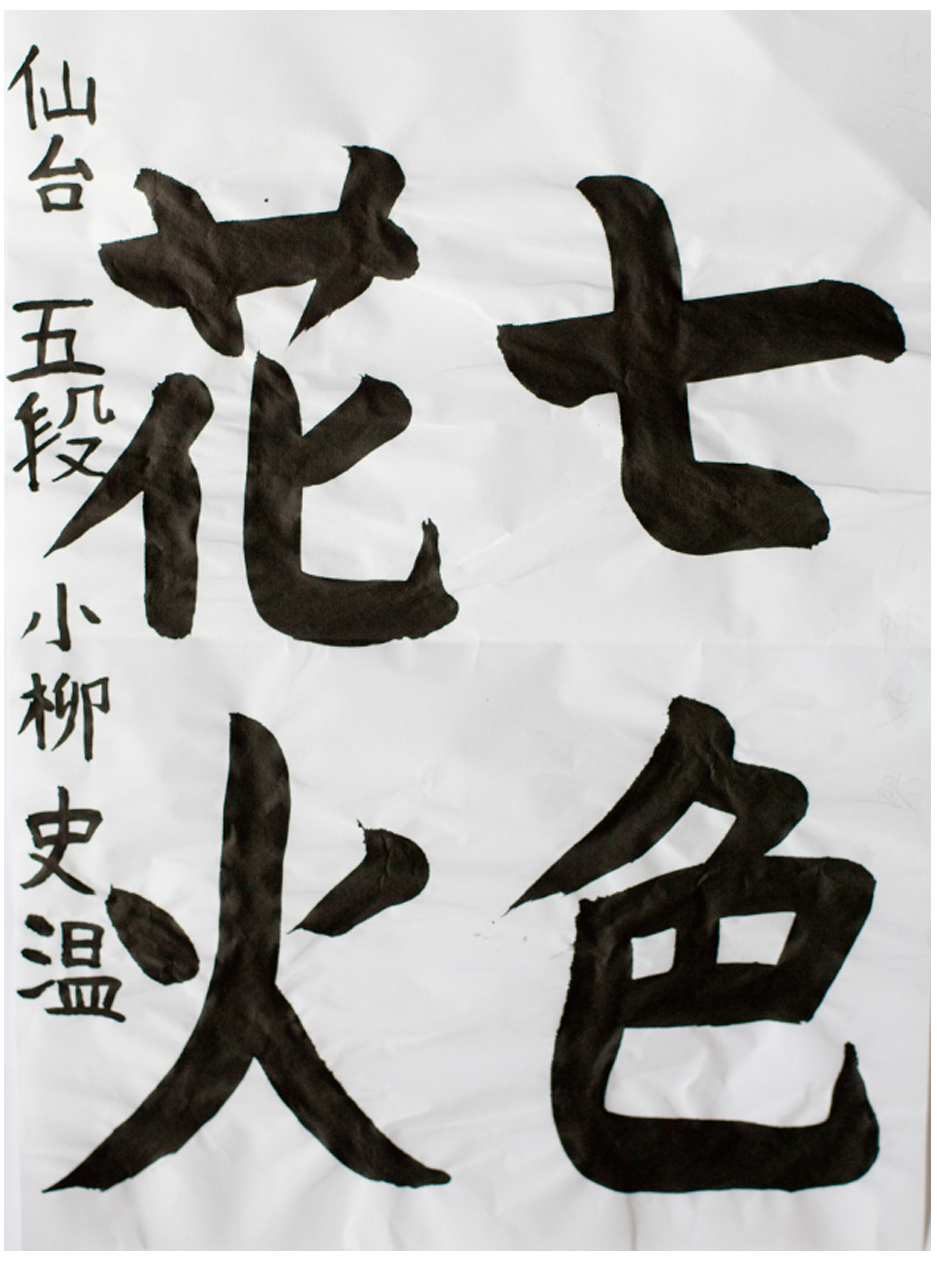 七色
花火
仙台 五段 小柳 史温